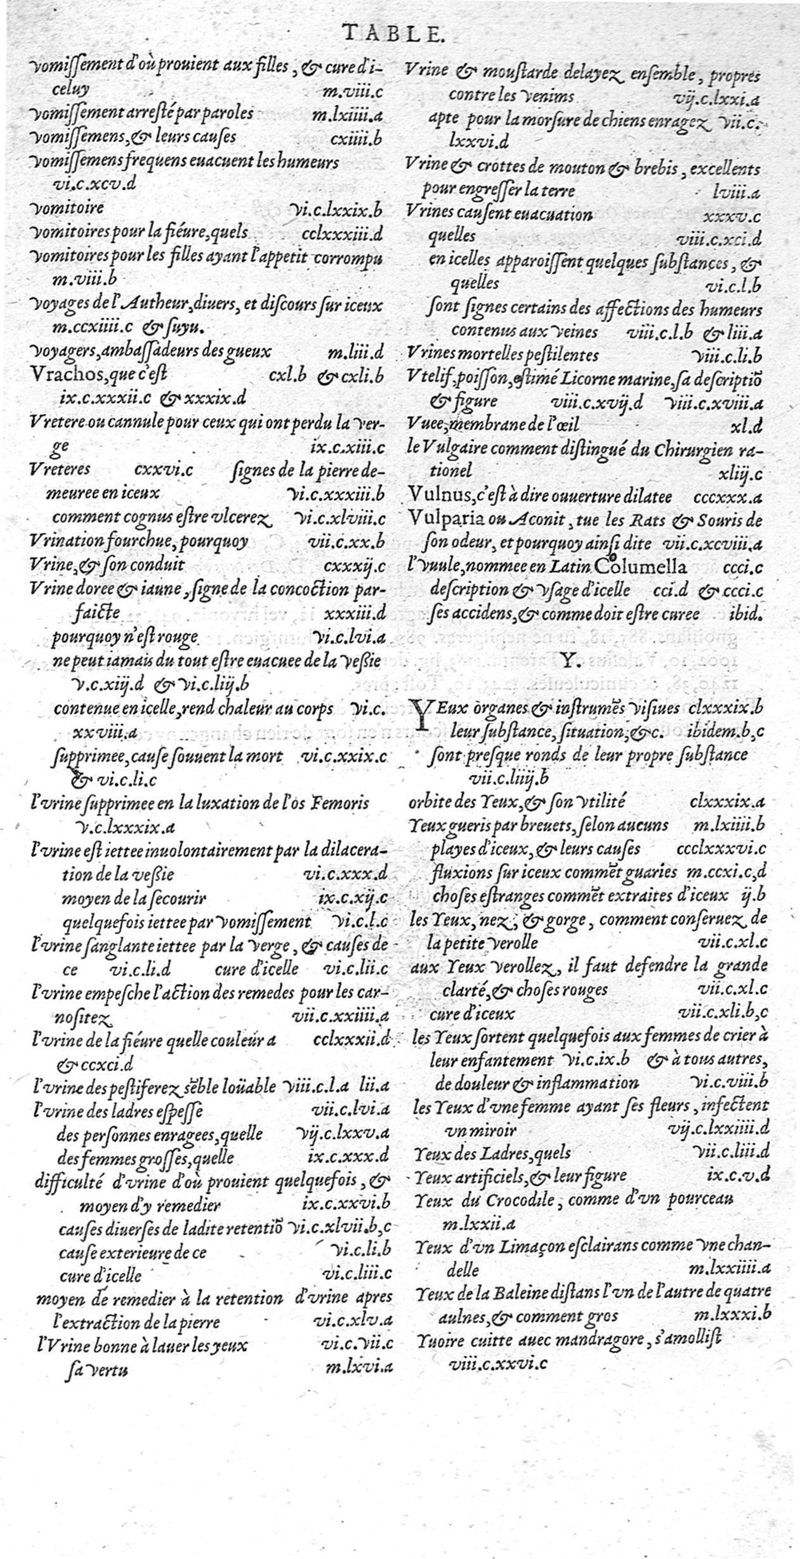 TABLE.
vomiſſement d'où prouient aux filles, & cure d'i-
celuy m.viii.c
vomiſſement arreſté par paroles m.lxiiii.a
vomiſſemens, & leurs cauſes cxiiii.b
vomiſſemens frequens euacuent les humeurs
vi.c.xcv.d
vomitoire vi.c.lxxix.b
vomitoires pour la fiéure, quels cclxxxiii.d
vomitoires pour les filles ayant l'appetit corrompu
m.viii.b
voyages de l'Autheur, diuers, et diſcours ſur iceux
m.ccxiiii.c & ſuyu.
voyagers, ambaſſadeurs des gueux m.liii.d
Vrachos, que c'eſt cxl.b & cxli.b
ix.c.xxxii.c & xxxix.d
Vretere ou cannule pour ceux qui ont perdu la ver-
ge ix.c.xiii.c
Vreteres cxxvi.c ſignes de la pierre de-
meuree en iceux vi.c.xxxiii.b
comment cognus eſtre vlcerez vi.c.xlviii.c
Vrination fourchue, pourquoy vii.c.xx.b
Vrine, & ſon conduit cxxxij.c
Vrine doree & iaune, ſigne de la concoction par-
faicte xxxiii.d
pourquoy n'eſt rouge vi.c.lvi.a
ne peut iamais du tout eſtre euacuee de la veſsie
v.c.xij.d & vi.c.liij.b
contenue en icelle, rend chaleur au corps vi.c.
xxviii.a
ſupprimee, cauſe ſouuent la mort vi.c.xxix.c
& vi.c.li.c
l'vrine ſupprimee en la luxation de l'os Femoris
v.c.lxxxix.a
l'vrine eſt iettee inuolontairement par la dilacera-
tion de la veſsie vi.c.xxx.d
moyen de la ſecourir ix.c.xij.c
quelquefois iettee par vomiſſement vi.c.l.c
l'vrine ſanglante iettee par la verge, & cauſes de
ce vi.c.li.d cure d'icelle vi.c.lii.c
l'vrine empeſche l'action des remedes pour les car-
noſitez vii.c.xxiiii.a
l'vrine de la fiéure quelle couleur a cclxxxii.d
& ccxci.d
l'vrine des peſtiferez sẽble loüable viii.c.l.a lii.a
l'vrine des ladres eſpeſſe vii.c.lvi.a
des perſonnes enragees, quelle vij.c.lxxv.a
des femmes groſſes, quelle ix.c.xxx.d
difficulté d'vrine d'où prouient quelquefois, &
moyen d'y remedier ix.c.xxvi.b
cauſes diuerſes de ladite retentiõ vi.c.xlvii.b,c
cauſe exterieure de ce vi.c.li.b
cure d'icelle vi.c.liii.c
moyen de remedier à la retention d'vrine apres
l'extraction de la pierre vi.c.xlv.a
l'Vrine bonne à lauer les yeux vi.c.vii.c
ſa vertu m.lxvi.a
Vrine & mouſtarde delayez enſemble, propres
contre les venims vij.c.lxxi.a
apte pour la morſure de chiens enragez vii.c.
lxxvi.d
Vrine & crottes de mouton & brebis, excellents
pour engreſſer la terre lviii.a
Vrines cauſent euacuation xxxv.c
quelles viii.c.xci.d
en icelles apparoiſſent quelques ſubſtances, &
quelles vi.c.l.b
ſont ſignes certains des affections des humeurs
contenus aux veines viii.c.l.b & liii.a
Vrines mortelles peſtilentes viii.c.li.b
Vtelif, poiſſon, eſtimé Licorne marine, ſa deſcriptiõ
& figure viii.c.xvij.d viii.c.xviii.a
Vuee, membrane de l'œil xl.d
le Vulgaire comment diſtingué du Chirurgien ra-
tionel xlij.c
Vulnus, c'eſt à dire ouuerture dilatee cccxxx.a
Vulparia ou Aconit, tue les Rats & Souris de
ſon odeur, et pourquoy ainſi dite vii.c.xcviii.a
l'vuule, nommee en Latin Columella ccci.c
deſcription & vſage d'icelle cci.d & ccci.c
ſes accidens, & comme doit eſtre curee ibid.
Y.
YEux organes & inſtrumẽs viſiues clxxxix.b
leur ſubſtance, ſituation, &c. ibidem.b,c
ſont preſque ronds de leur propre ſubſtance
vii.c.liiij.b
orbite des Yeux, & ſon vtilité clxxxix.a
Yeux gueris par breuets, ſelon aucuns m.lxiiii.b
playes d'iceux, & leurs cauſes ccclxxxvi.c
fluxions ſur iceux commẽt guaries m.ccxi.c,d
choſes eſtranges commẽt extraites d'iceux ij.b
les Yeux, nez, & gorge, comment conſeruez de
la petite verolle vii.c.xl.c
aux Yeux verollez, il faut defendre la grande
clarté, & choſes rouges vii.c.xl.c
cure d'iceux vii.c.xli.b,c
les Yeux ſortent quelquefois aux femmes de crier à
leur enfantement vi.c.ix.b & à tous autres,
de douleur & inflammation vi.c.viii.b
les Yeux d'vne femme ayant ſes fleurs, infectent
vn miroir vij.c.lxxiiii.d
Yeux des Ladres, quels vii.c.liii.d
Yeux artificiels, & leur figure ix.c.v.d
Yeux du Crocodile, comme d'vn pourceau
m.lxxii.a
Yeux d'vn Limaçon eſclairans comme vne chan-
delle m.lxxiiii.a
Yeux de la Baleine diſtans l'vn de l'autre de quatre
aulnes, & comment gros m.lxxxi.b
Yuoire cuitte auec mandragore, s'amolliſt
viii.c.xxvi.c